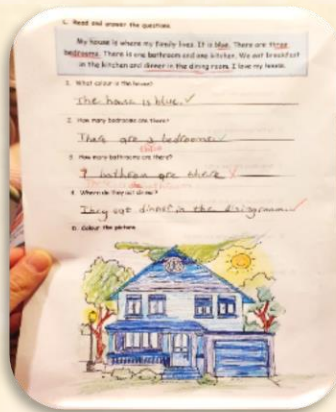 C. Read and answer the questions.
My house is where my family lives. It is blue. There are three
bedrooms. There is one bathroom and one kitchen. We eat breakfast
in the kitchen and dinner in the dining room. I love my house.
1. What colour is the house?
The house is blue.
2. How many bedrooms are there?
There are 3 bedrooms
three
3. How many bathrooms are there?
1 bathroom are there
4. Where do they eat dinner?
They eat dinner in the diningroom
D. Colour the picture.